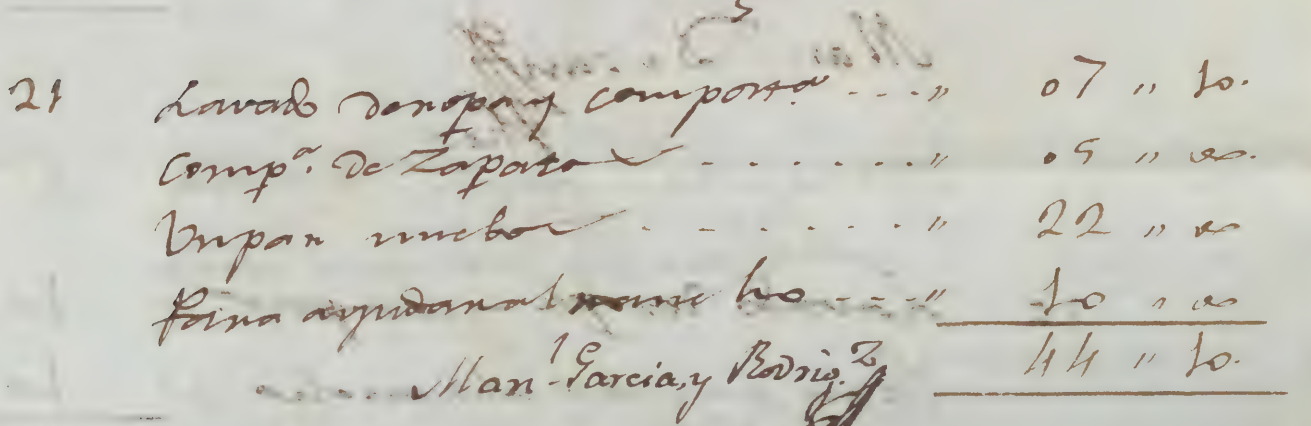 21 Lavado de ropa y compost.ª - - - " 07 " 10.
Comp.ª de Zapatos - - - - - - " 05 " "
Un par nuebos - - - - - - " 22 " "
Para ayudar al - - - " 10 " "
Man.l Garcia, y Rodrig.z 44 " 10.